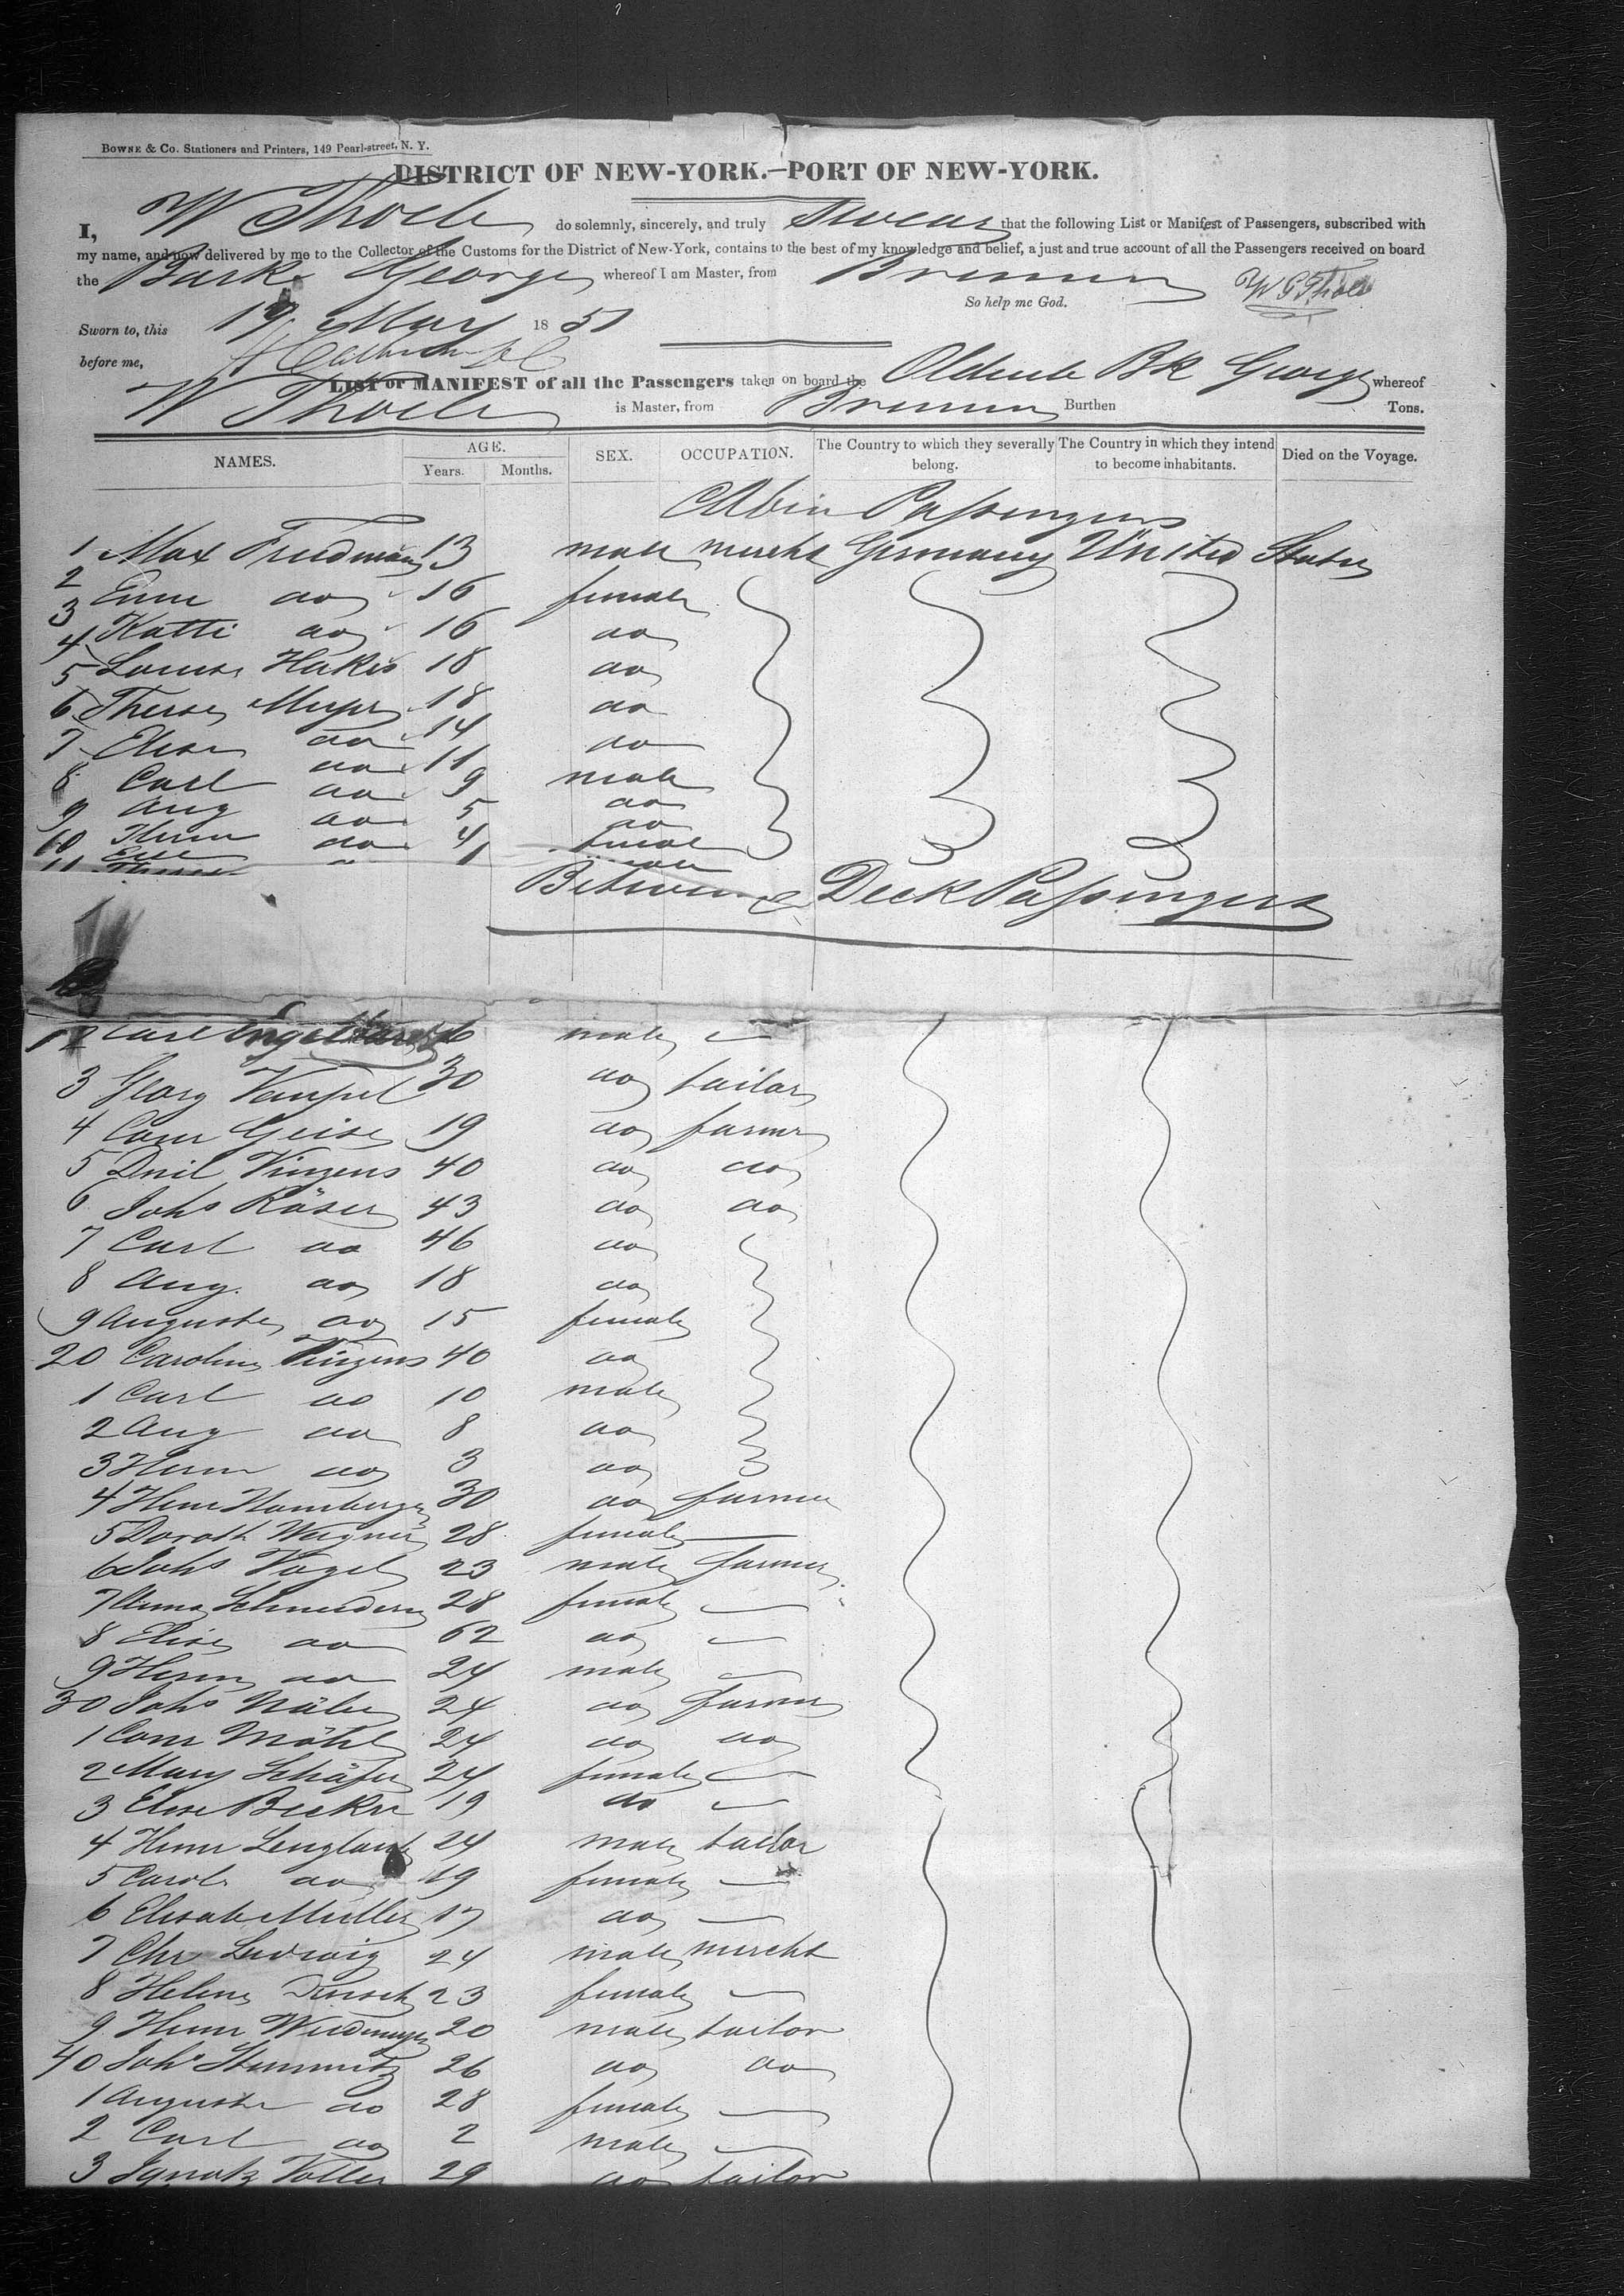 BOWNE & Co. Stationers and Printers, 149 Pearl-street, N. Y.
DISTRICT OF NEW-YORK.—PORT OF NEW-YORK.
I, W Thole do solemnly, sincerely, and truly Swear that the following List or Manifest of Passengers, subscribed with
my name, and now delivered by me to the Collector of the Customs for the District of New-York, contains to the best of my knowledge and belief, a just and true account of all the Passengers received on board
the Bark George whereof I am Master, from Bremen
So help me God.
Sworn to, this 19 May 1851
before me,
LIST or MANIFEST of all the Passengers taken on board the Bk George whereof
W Thole is Master, from Bremen Burthen Tons.
NAMES. AGE. Years. Months. SEX. OCCUPATION. The Country to which they severally belong. The Country in which they intend to become inhabitants. Died on the Voyage.
Cabin Passengers
1 Max Friedman 13 male mercht Germany United States
2 do 16 female
3 Katti do 16 do
4 Louise 18 do
5 Therese Meyer 18 do
6 Elise do 14 do
7 Carl do 11 male
8 Aug do 9 do
9 Herm do 5 do
10 Elise do 4 female
11 Therese
Between Deck Passengers
12 Carl 26 male —
3 Georg Vaupel 30 do tailor
4 Conr Geise 19 do farmer
5 Dnil Vinzens 40 do do
6 Johs Röser 43 do do
7 Carl do 46 do
8 Aug. do 18 do
9 Auguste do 15 female
20 Caroline Vinzens 40 do
1 Carl do 10 male
2 Aug do 8 do
3 Herm do 3 do
4 Henr Hamberger 30 do farmer
5 Doroth Wagner 28 female —
6 Johs Vogel 23 male farmer
7 Anna 28 female —
8 Elise do 62 do —
9 Herm do 24 male —
30 Johs 24 do farmer
1 Conr Möhl 24 do do
2 Mary Schäfer 24 female —
3 Elise Becker 19 do —
4 Henr 24 male tailor
5 Carol. do 19 female —
6 Elisab Müller 17 do —
7 Chr Ludwig 24 male mercht
8 Helene 23 female —
9 Henr Wiedmeyer 20 male tailor
40 Johs 26 do do
1 Auguste do 28 female —
2 Carl do 2 male —
3 Ignatz 29 do tailor